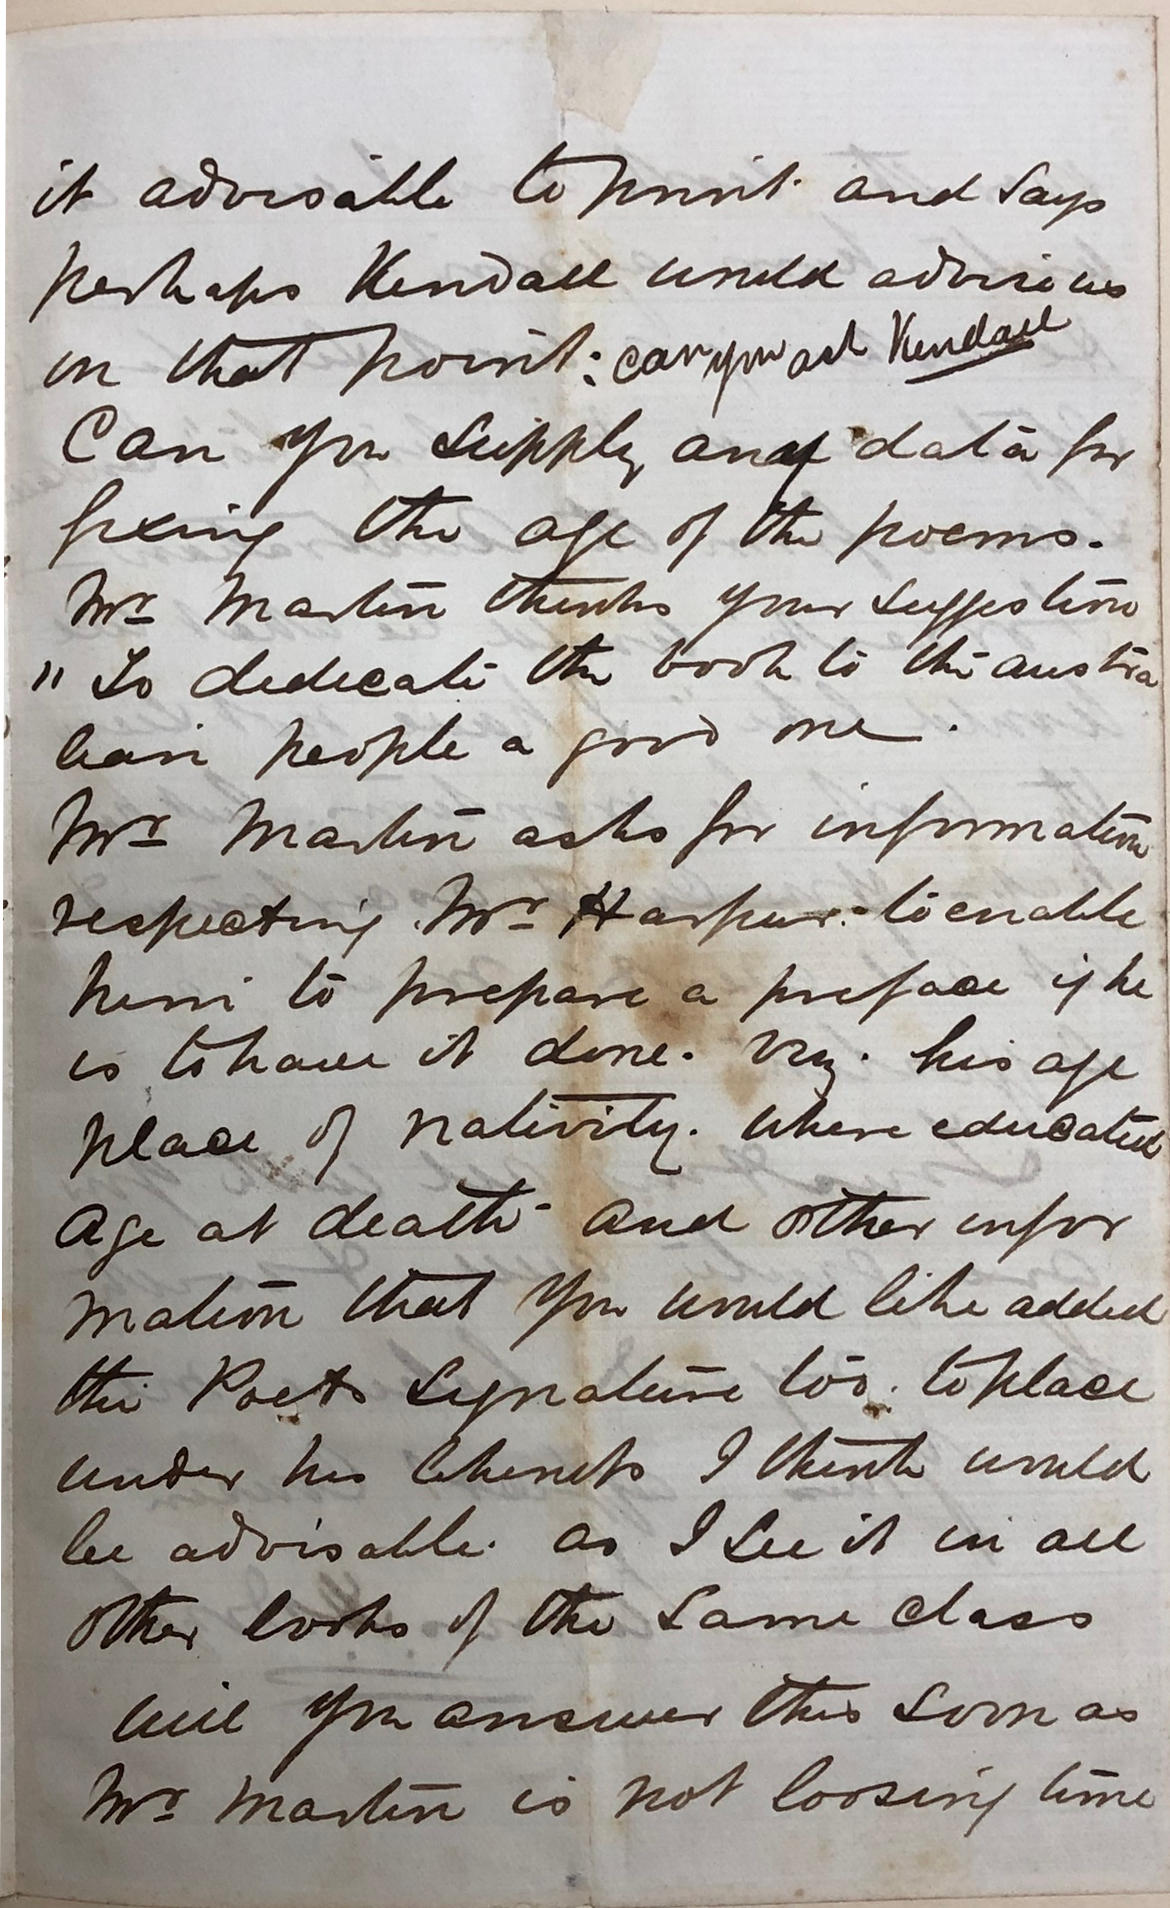 it advisable to print and says
perhaps Kendall would advise us
on that point: can you ask Kendall
Can you supply any data for
fixing the age of the poems.
Mr Martin thinks your suggestion
" To dedicate the book to the austra
lian people a good one.
Mr Martin asks for information
respecting Mr Harpur. to enable
him to prepare a preface if he
is to have it done. viz. his age
place of nativity. where educated
age at death - and other infor
mation that you would like added
the Poets Signature too. to place
under his likeness I think would
be advisable. as I see it in all
other books of the same class
will you answer this soon as
Mr Martin is not loosing time